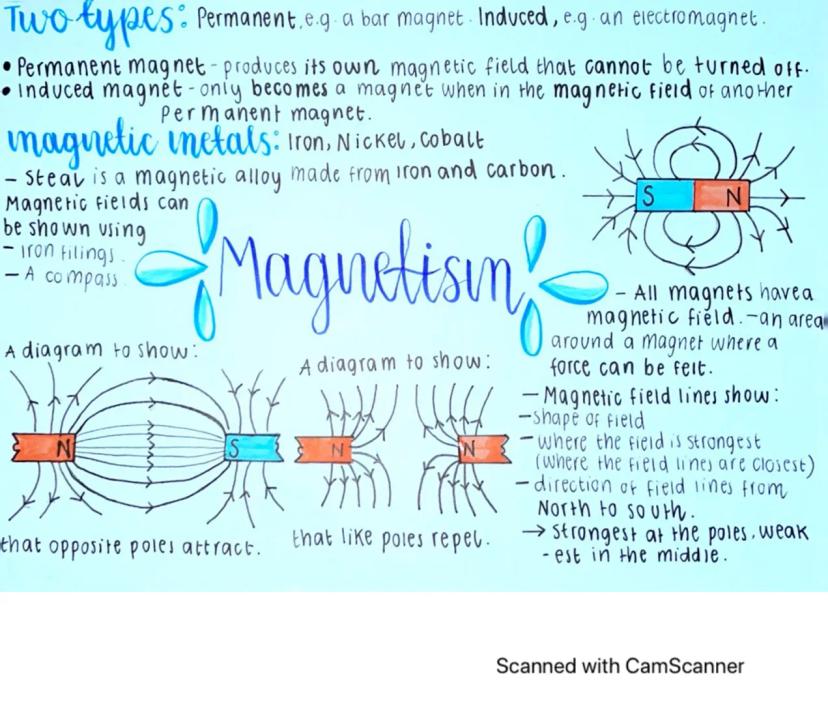 Two types: Permanent, e.g. a bar magnet. Induced, e.g. an electromagnet.
• Permanent magnet - produces its own magnetic field that cannot be turned off.
• Induced magnet - only becomes a magnet when in the magnetic field of another
Permanent magnet.
magnetic metals: Iron, Nickel, Cobalt
- Steal is a magnetic alloy made from iron and carbon.
Magnetic fields can
be shown using
- iron filings.
- A compass.
Magnetism
S N
- All magnets have a
magnetic field. - an area
around a magnet where a
force can be felt.
- Magnetic field lines show:
- shape of field
- where the field is strongest
(where the field lines are closest)
- direction of field lines from
North to south.
→ strongest at the poles, weak
-est in the middle.
A diagram to show:
N S
that opposite poles attract.
A diagram to show:
N N
that like poles repel.
Scanned with CamScanner